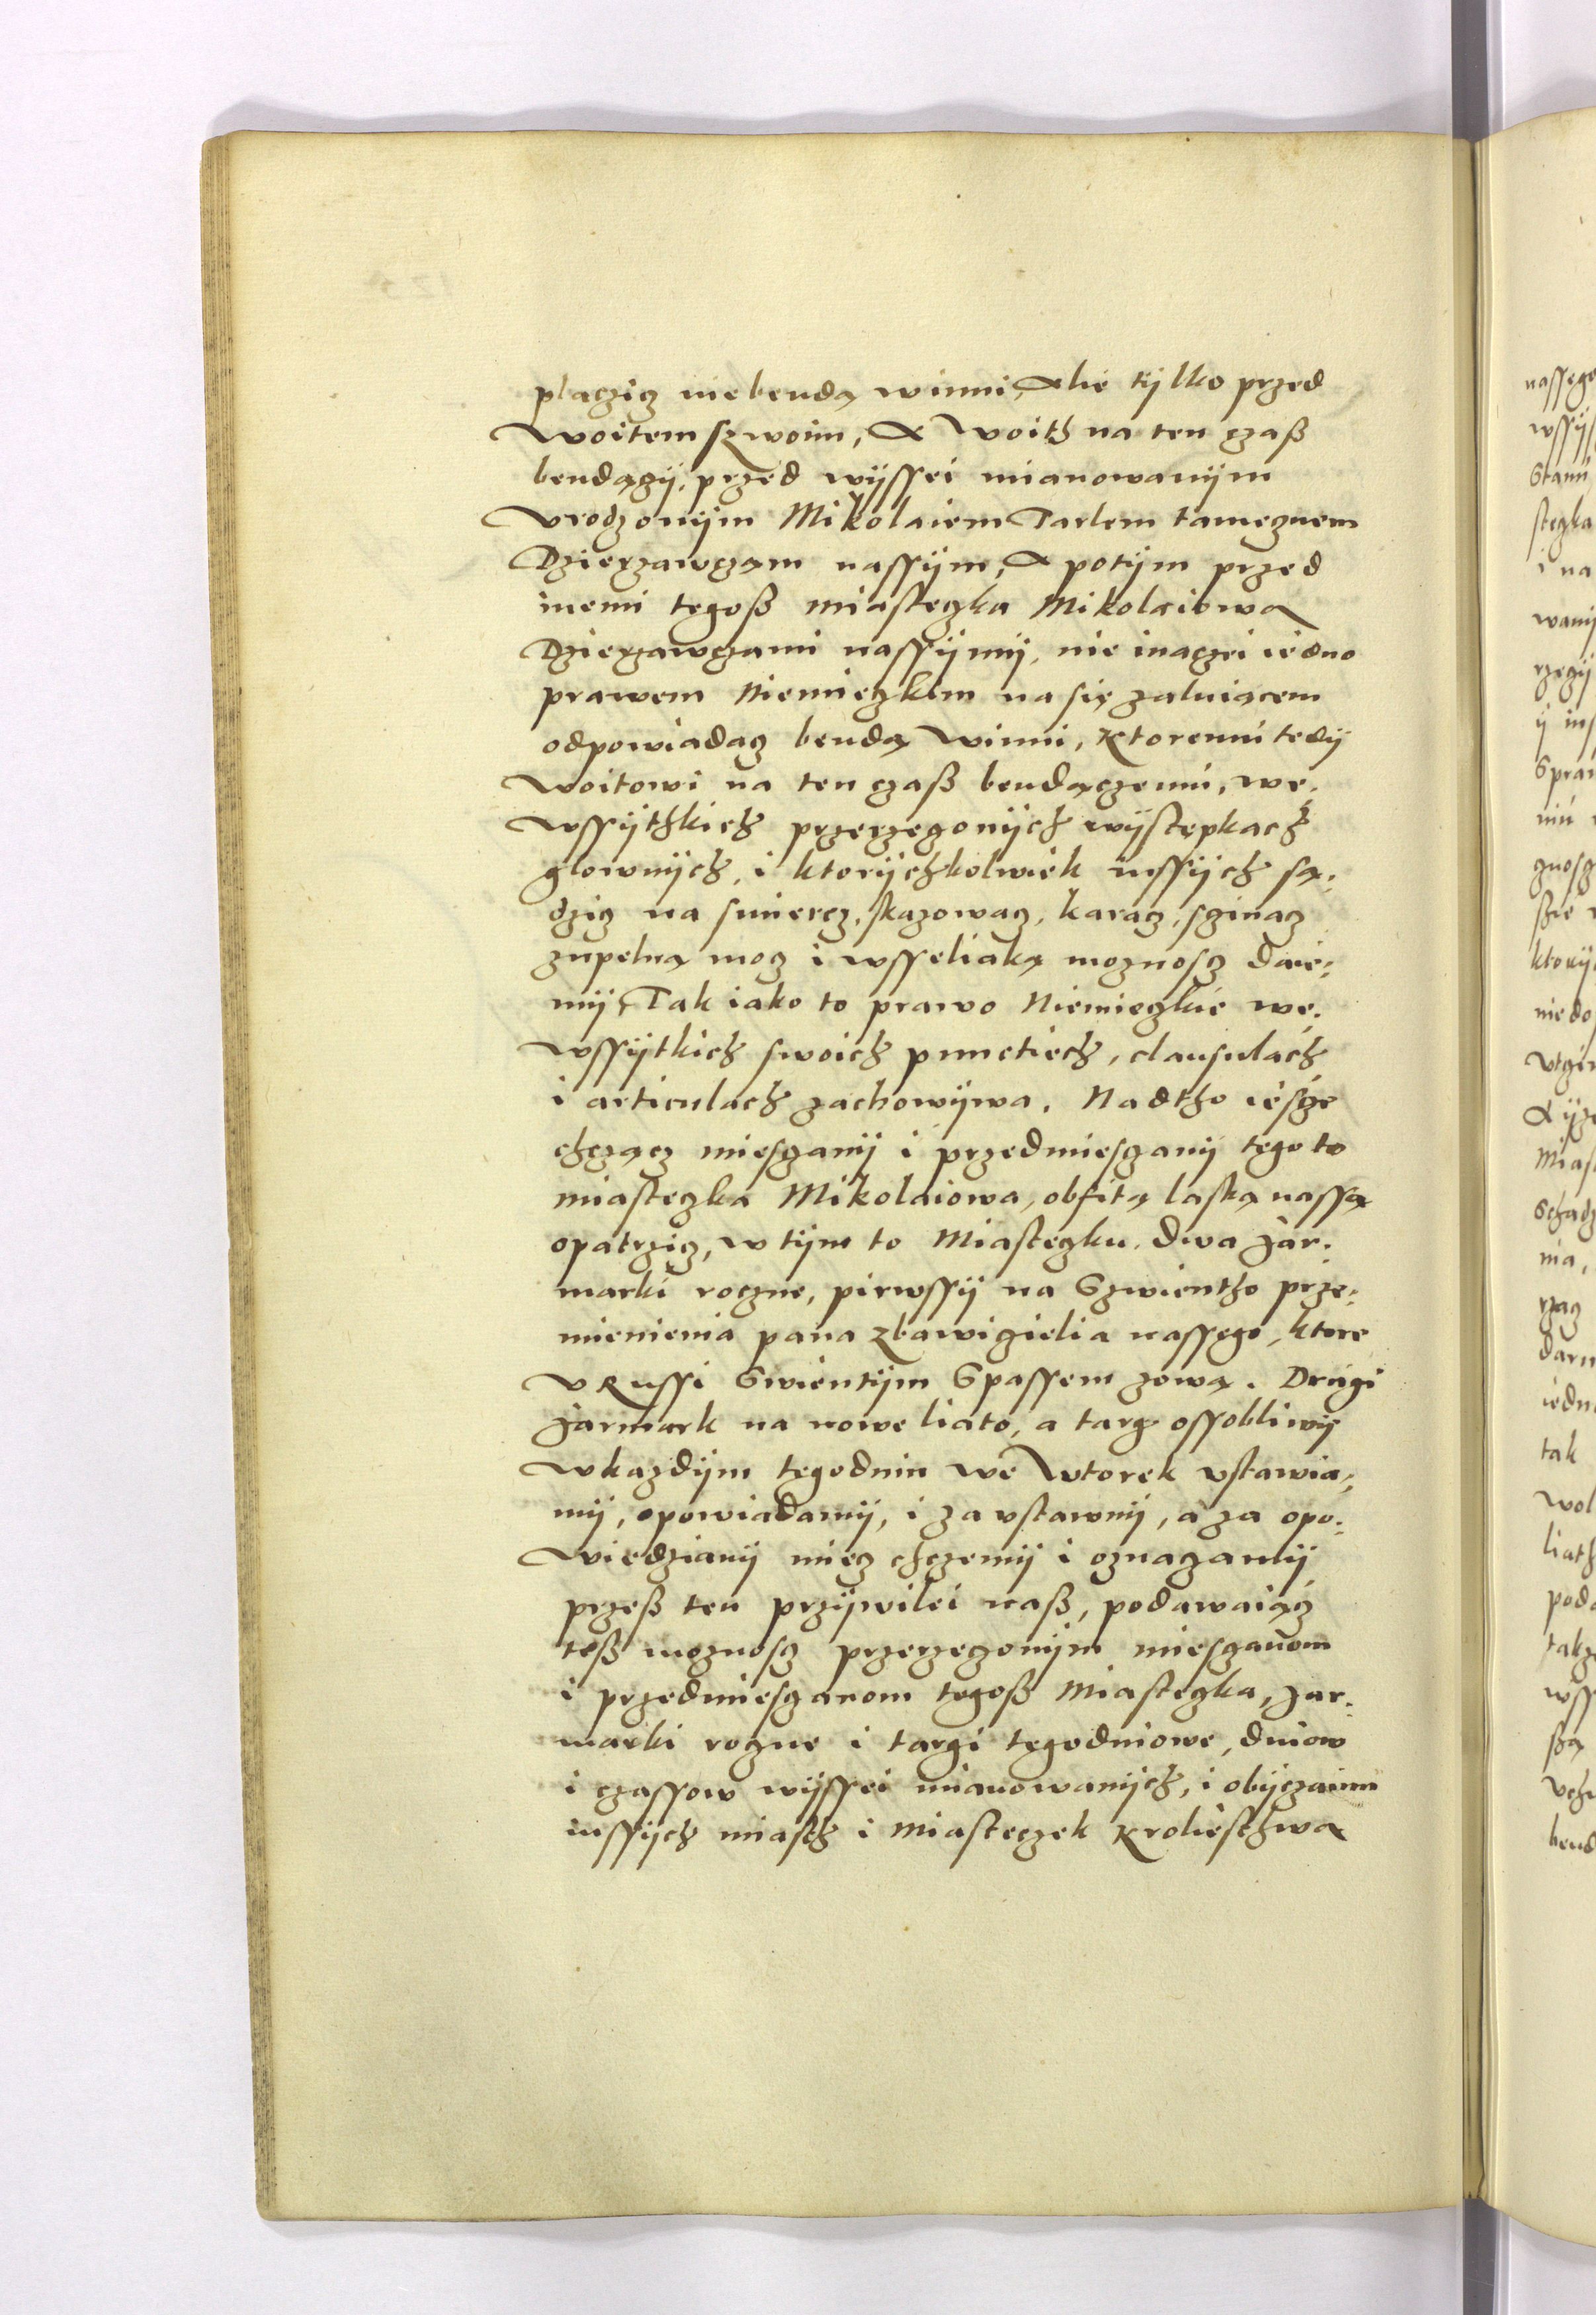 placzicz niebendą winni, Alie tylko przed
Woitem szwoim, A Woith na ten czaß
bendączy, przed wyssei mianowanym
Vrodzonym Mikolaiem Tarlem tamecznem
Dzierzawczam nassym, A potym przed
inemi tegoß miasteczka Mikolaiowa
Dzierzawczami nassymy, nie inaczei iedno
prawem Niemieczkim na się zaluiącem
odpowiadacz bendą winni, Ktoremu tedy
Woitowi na ten czaß bendączemu, we-
wssythkich przerzeczonych wystepkach
glownych, i ktorychkolwiek inssych są-
dzicz na smiercz, skazowacz, karacz, sczinacz
zupelną mocz i wsseliaką moznoscz daie-
my, Tak iako to prawo Niemieczkie we-
wssytkich swoich punctiech, clausulach
i articulach zachowywa. Nadtho iescze
chczącz miesczany i przedmiesczany tego to
miasteczka Mikolaiowa, obfitą laską nassą
opatrzicz, w tym to Miasteczku dwa Jar-
marki roczne, pirwssy na Szwientho prze-
mienienia pana zbawiczielia nassego, ktore
v Russi Swientym Spassem zową. Drugi
Jarmark na nowe liato, a targ ossobliwy
w kazdym tegodniu we Wtorek vstawia-
my, opowiadamy, i za vstawny, a za opo-
wiedziany miecz chczemy i oznaczamy
przeß ten przywilei naß, podawaiącz
teß moznoscz przerzeczonym miesczanom
i przedmiesczanom tegoß Miasteczka, Jar-
marki roczne i targi tegodniowe, dniow
i czassow wyssei mianowanych, i obyczaiem
inssych miasth i Miasteczek Krolesthwa